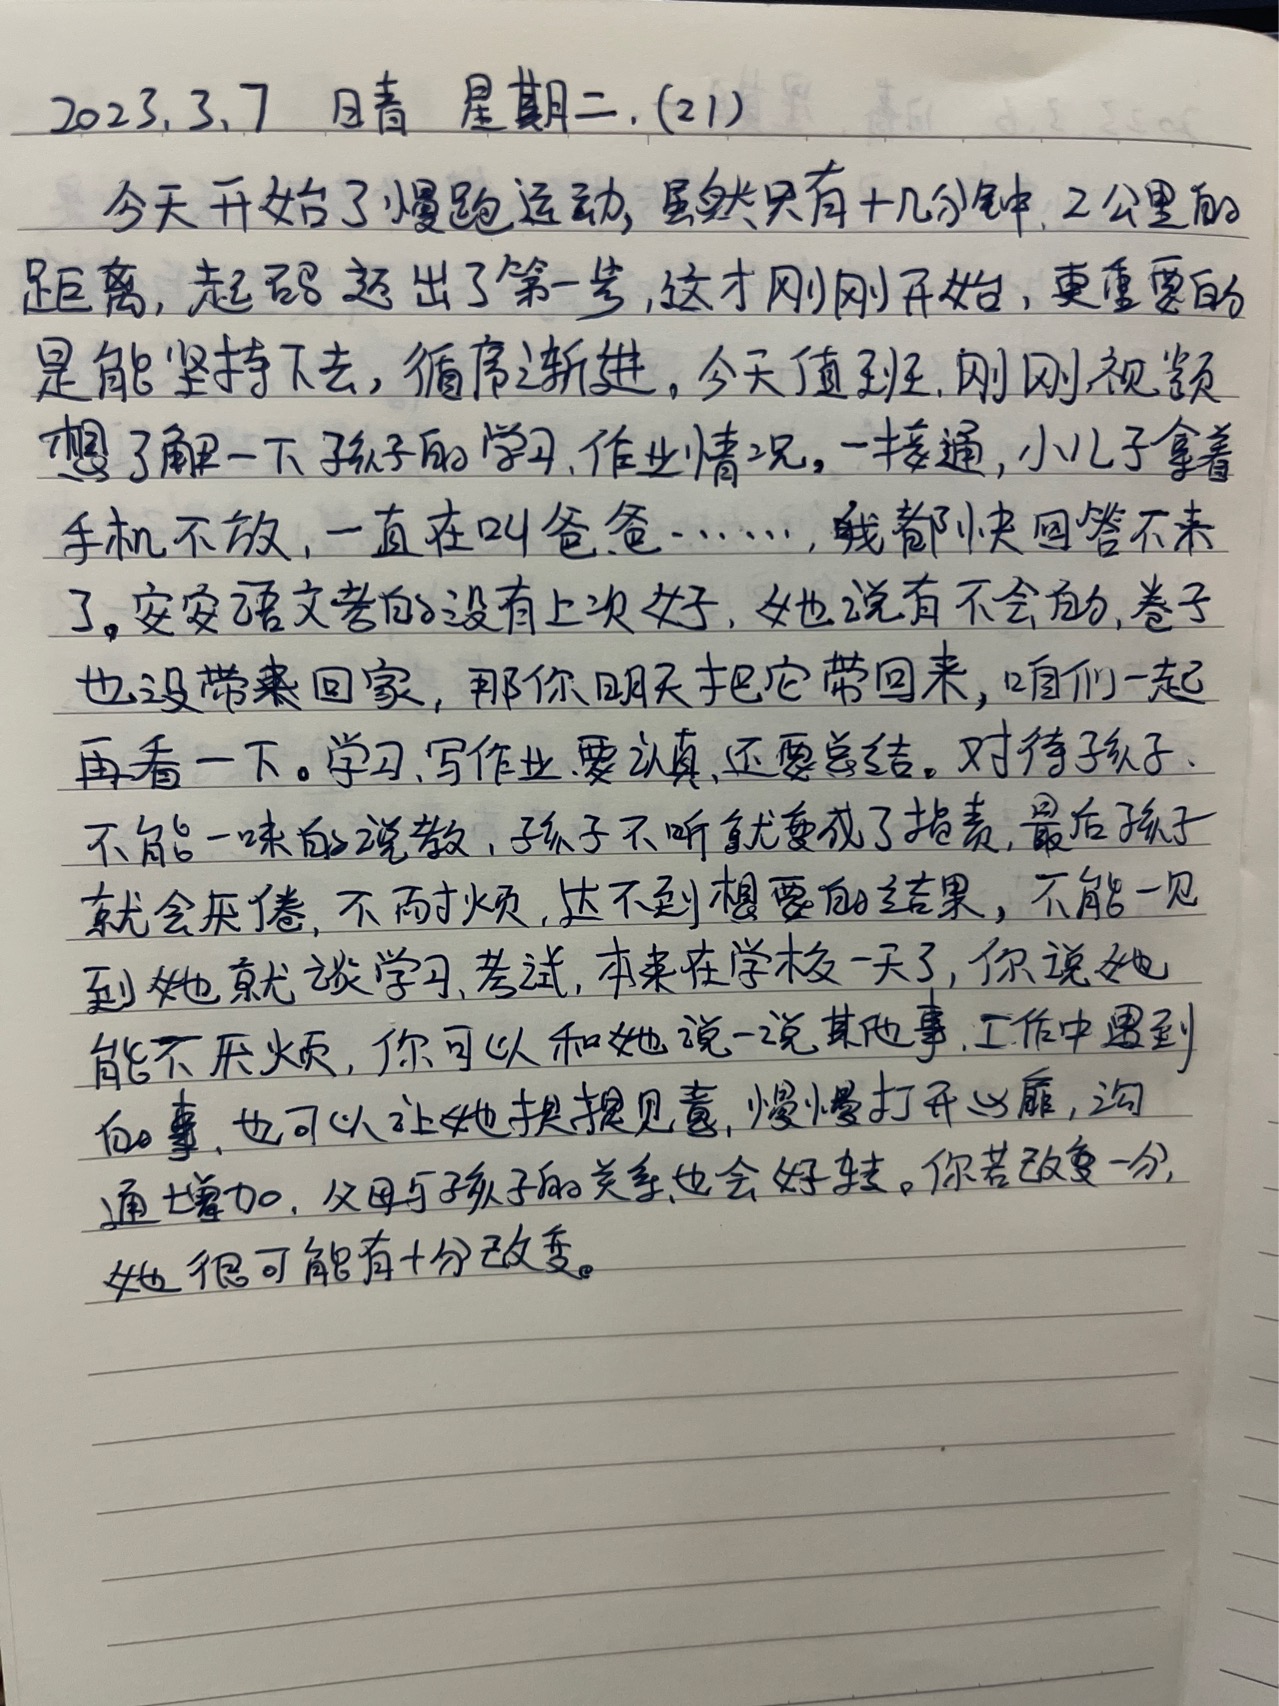 2023.3.7 晴 星期二.(21)
今天开始了慢跑运动,虽然只有十几分钟、2公里的
距离,起码迈出了第一步,这才刚刚开始,更重要的
是能坚持下去,循序渐进。今天值班,刚刚视频
想了解一下孩子的学习、作业情况。一接通,小儿子拿着
手机不放,一直在叫爸爸……,我都快回答不来
了。安安语文考的没有上次好,她说有不会的,卷子
也没带来回家,那你明天把它带回来,咱们一起
再看一下。学习、写作业要认真、还要总结。对待孩子、
不能一味的说教,孩子不听就变成了指责,最后孩子
就会厌倦,不耐烦,达不到想要的结果,不能一见
到她就谈学习、考试,本来在学校一天了,你说她
能不厌烦,你可以和她说一说其他事、工作中遇到
的事,也可以让她提提见意,慢慢打开心扉,沟
通增加,父母与孩子的关系也会好转。你若改变一分,
她很可能有十分改变。